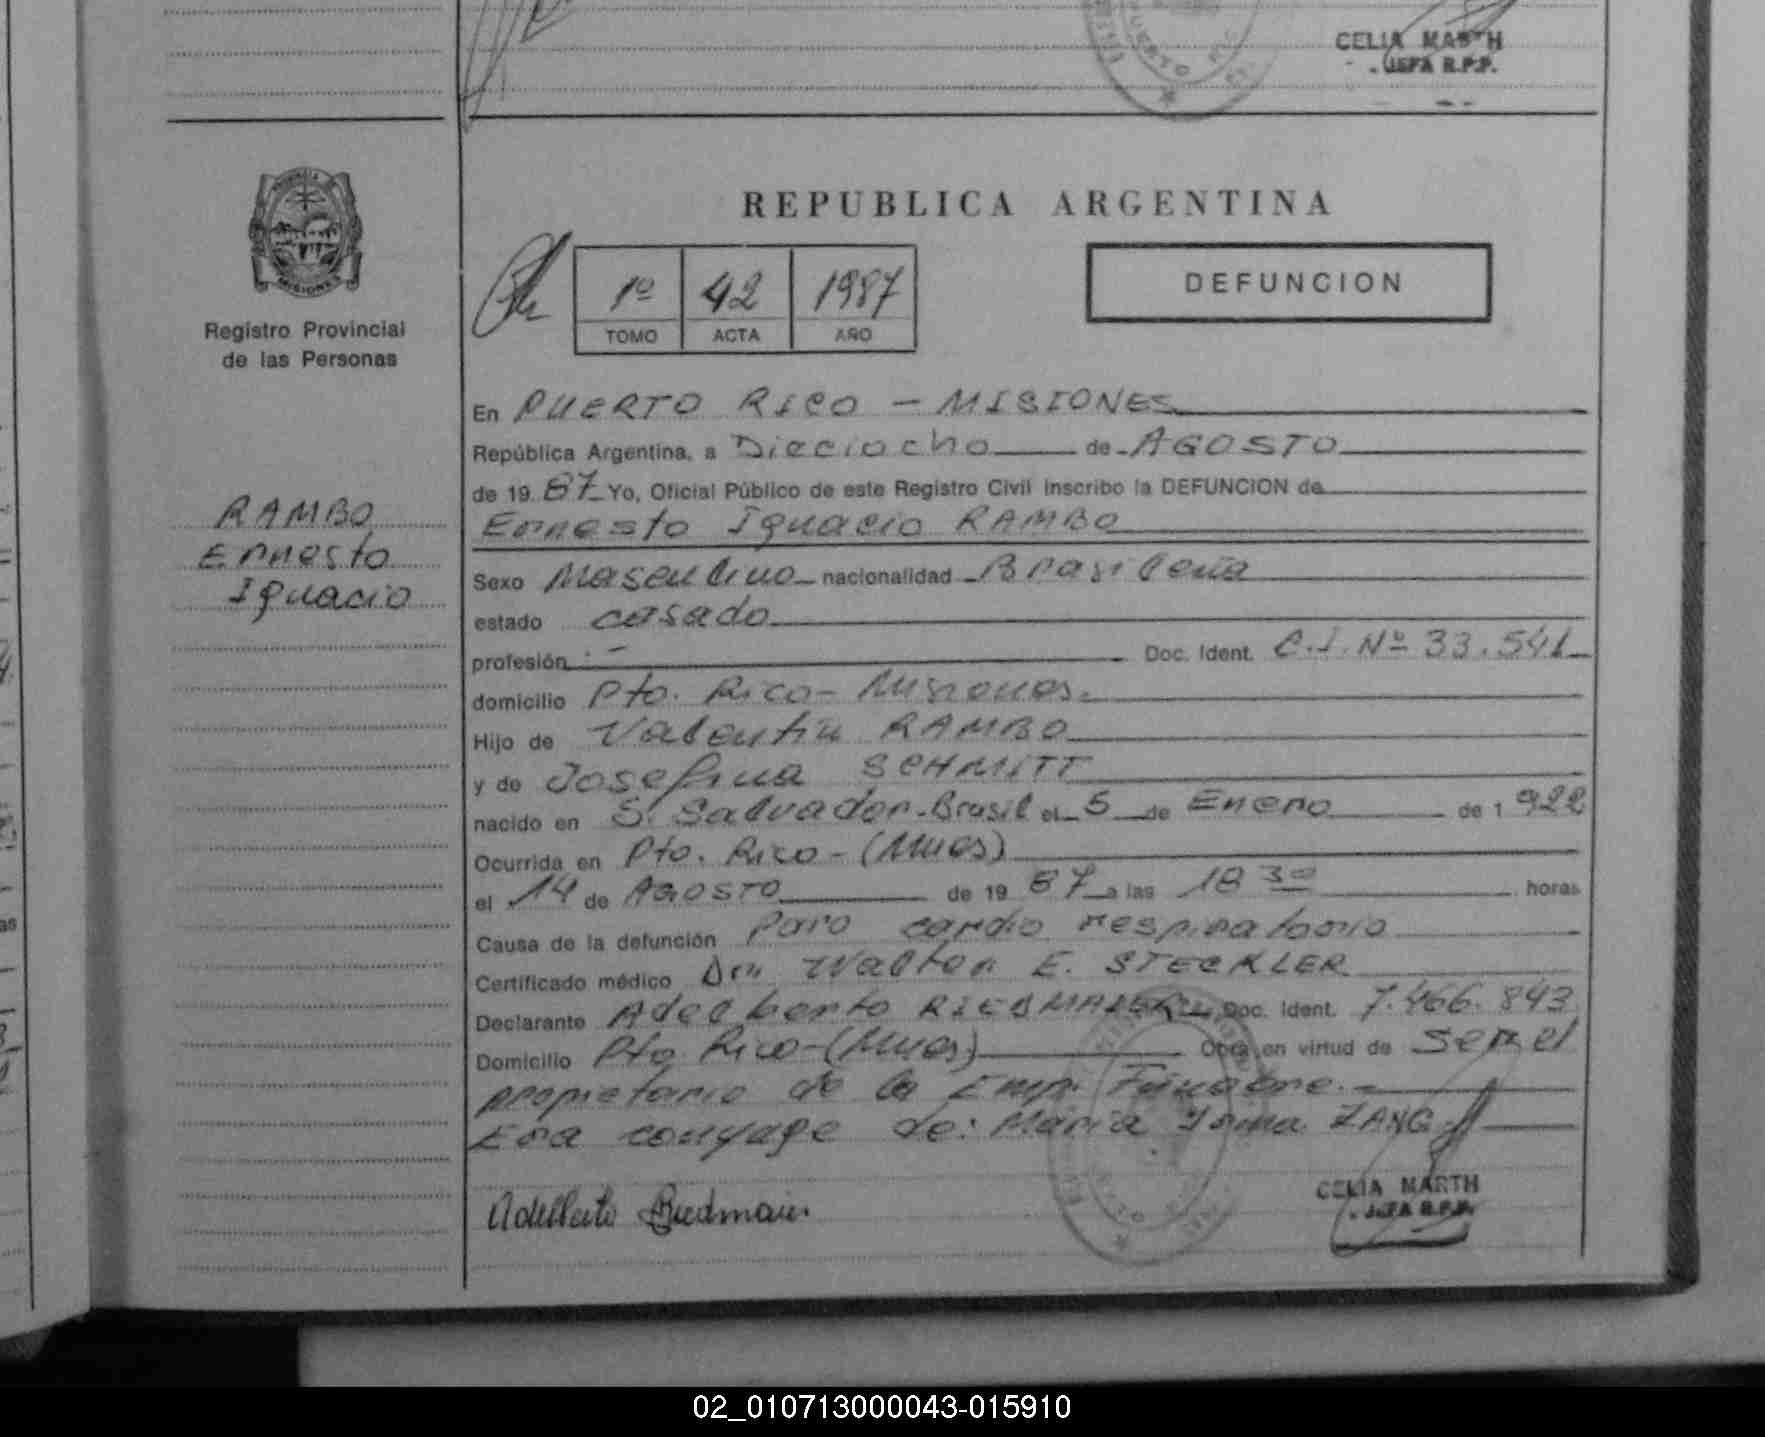 CELIA MARTH
JEFA R.P.P.
PROVINCIA DE
MISIONES
Registro Provincial
de las Personas
RAMBO
Ernesto
Ignacio
REPUBLICA ARGENTINA
1º 42 1987
TOMO ACTA AÑO
DEFUNCION
En PUERTO RICO - MISIONES
República Argentina, a Dieciocho de AGOSTO
de 19 87 Yo, Oficial Público de este Registro Civil inscribo la DEFUNCION de
Ernesto Ignacio RAMBO
Sexo Masculino nacionalidad Brasileña
estado casado
profesión : - Doc. Ident. C.I. Nº 33.541
domicilio Pto. Rico - Misiones.
Hijo de Valentín RAMBO
y de Josefina SCHMITT
nacido en S. Salvador - Brasil el 5 de Enero de 1 922
Ocurrida en Pto. Rico - (Mnes)
el 14 de AGOSTO de 19 87 a las 18 30 horas
Causa de la defunción Paro cardio respiratorio
Certificado médico Dr. Walter E. STECKLER
Declarante Adelberto RIEDMAIER Doc. Ident. 7.466.843
Domicilio Pto. Rico - (Mnes) Obra en virtud de ser el
propietario de la Emp. Fúnebre. -
Era conyuge de: María Irma ZANG
Adelberto Riedmaier
CELIA MARTH
JEFA R.P.P.
02_010713000043-015910